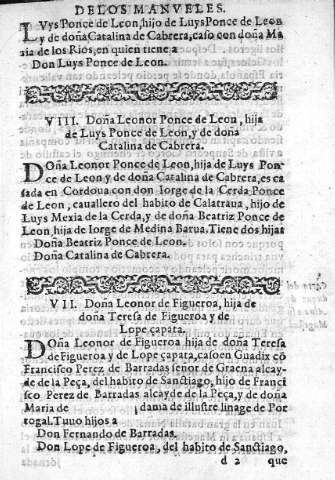 DE LOS MANVELES.
LVys Ponce de Leon, hijo de Luys Ponce de Leon
y de doña Catalina de Cabrera, caso con doña Ma
ria de los Rios, en quien tiene a
Don Luys Ponce de Leon.
VIII. Doña Leonor Ponce de Leon, hija
de Luys Ponce de Leon, y de doña
Catalina de Cabrera.
DOña Leonor Ponce de Leon, hija de Luys Pon-
ce de Leon y de doña Catalina de Cabrera, es ca
sada en Cordoua con don Iorge de la Cerda Ponce
de Leon, cauallero del habito de Calatraua, hijo de
Luys Mexia de la Cerda, y de doña Beatriz Ponce de
Leon, hija de Iorge de Medina Barua. Tiene dos hijas
Doña Beatriz Ponce de Leon.
Doña Catalina de Cabrera.
VII. Doña Leonor de Figueroa, hija de
doña Teresa de Figueroa y de
Lope çapata.
DOña Leonor de Figueroa hija de doña Teresa
de Figueroa y de Lope çapata, caso en Guadix cõ
Francisco Perez de Barradas señor de Graena alcay-
de de la Peça, del habito de Sanctiago, hijo de Franci
sco Perez de Barradas alcayde de la Peça, y de doña
Maria de dama de illustre linage de Por
togal. Tuuo hijos a
Don Fernando de Barradas.
Don Lope de Figueroa, del habito de Sanctiago,
d 2 que